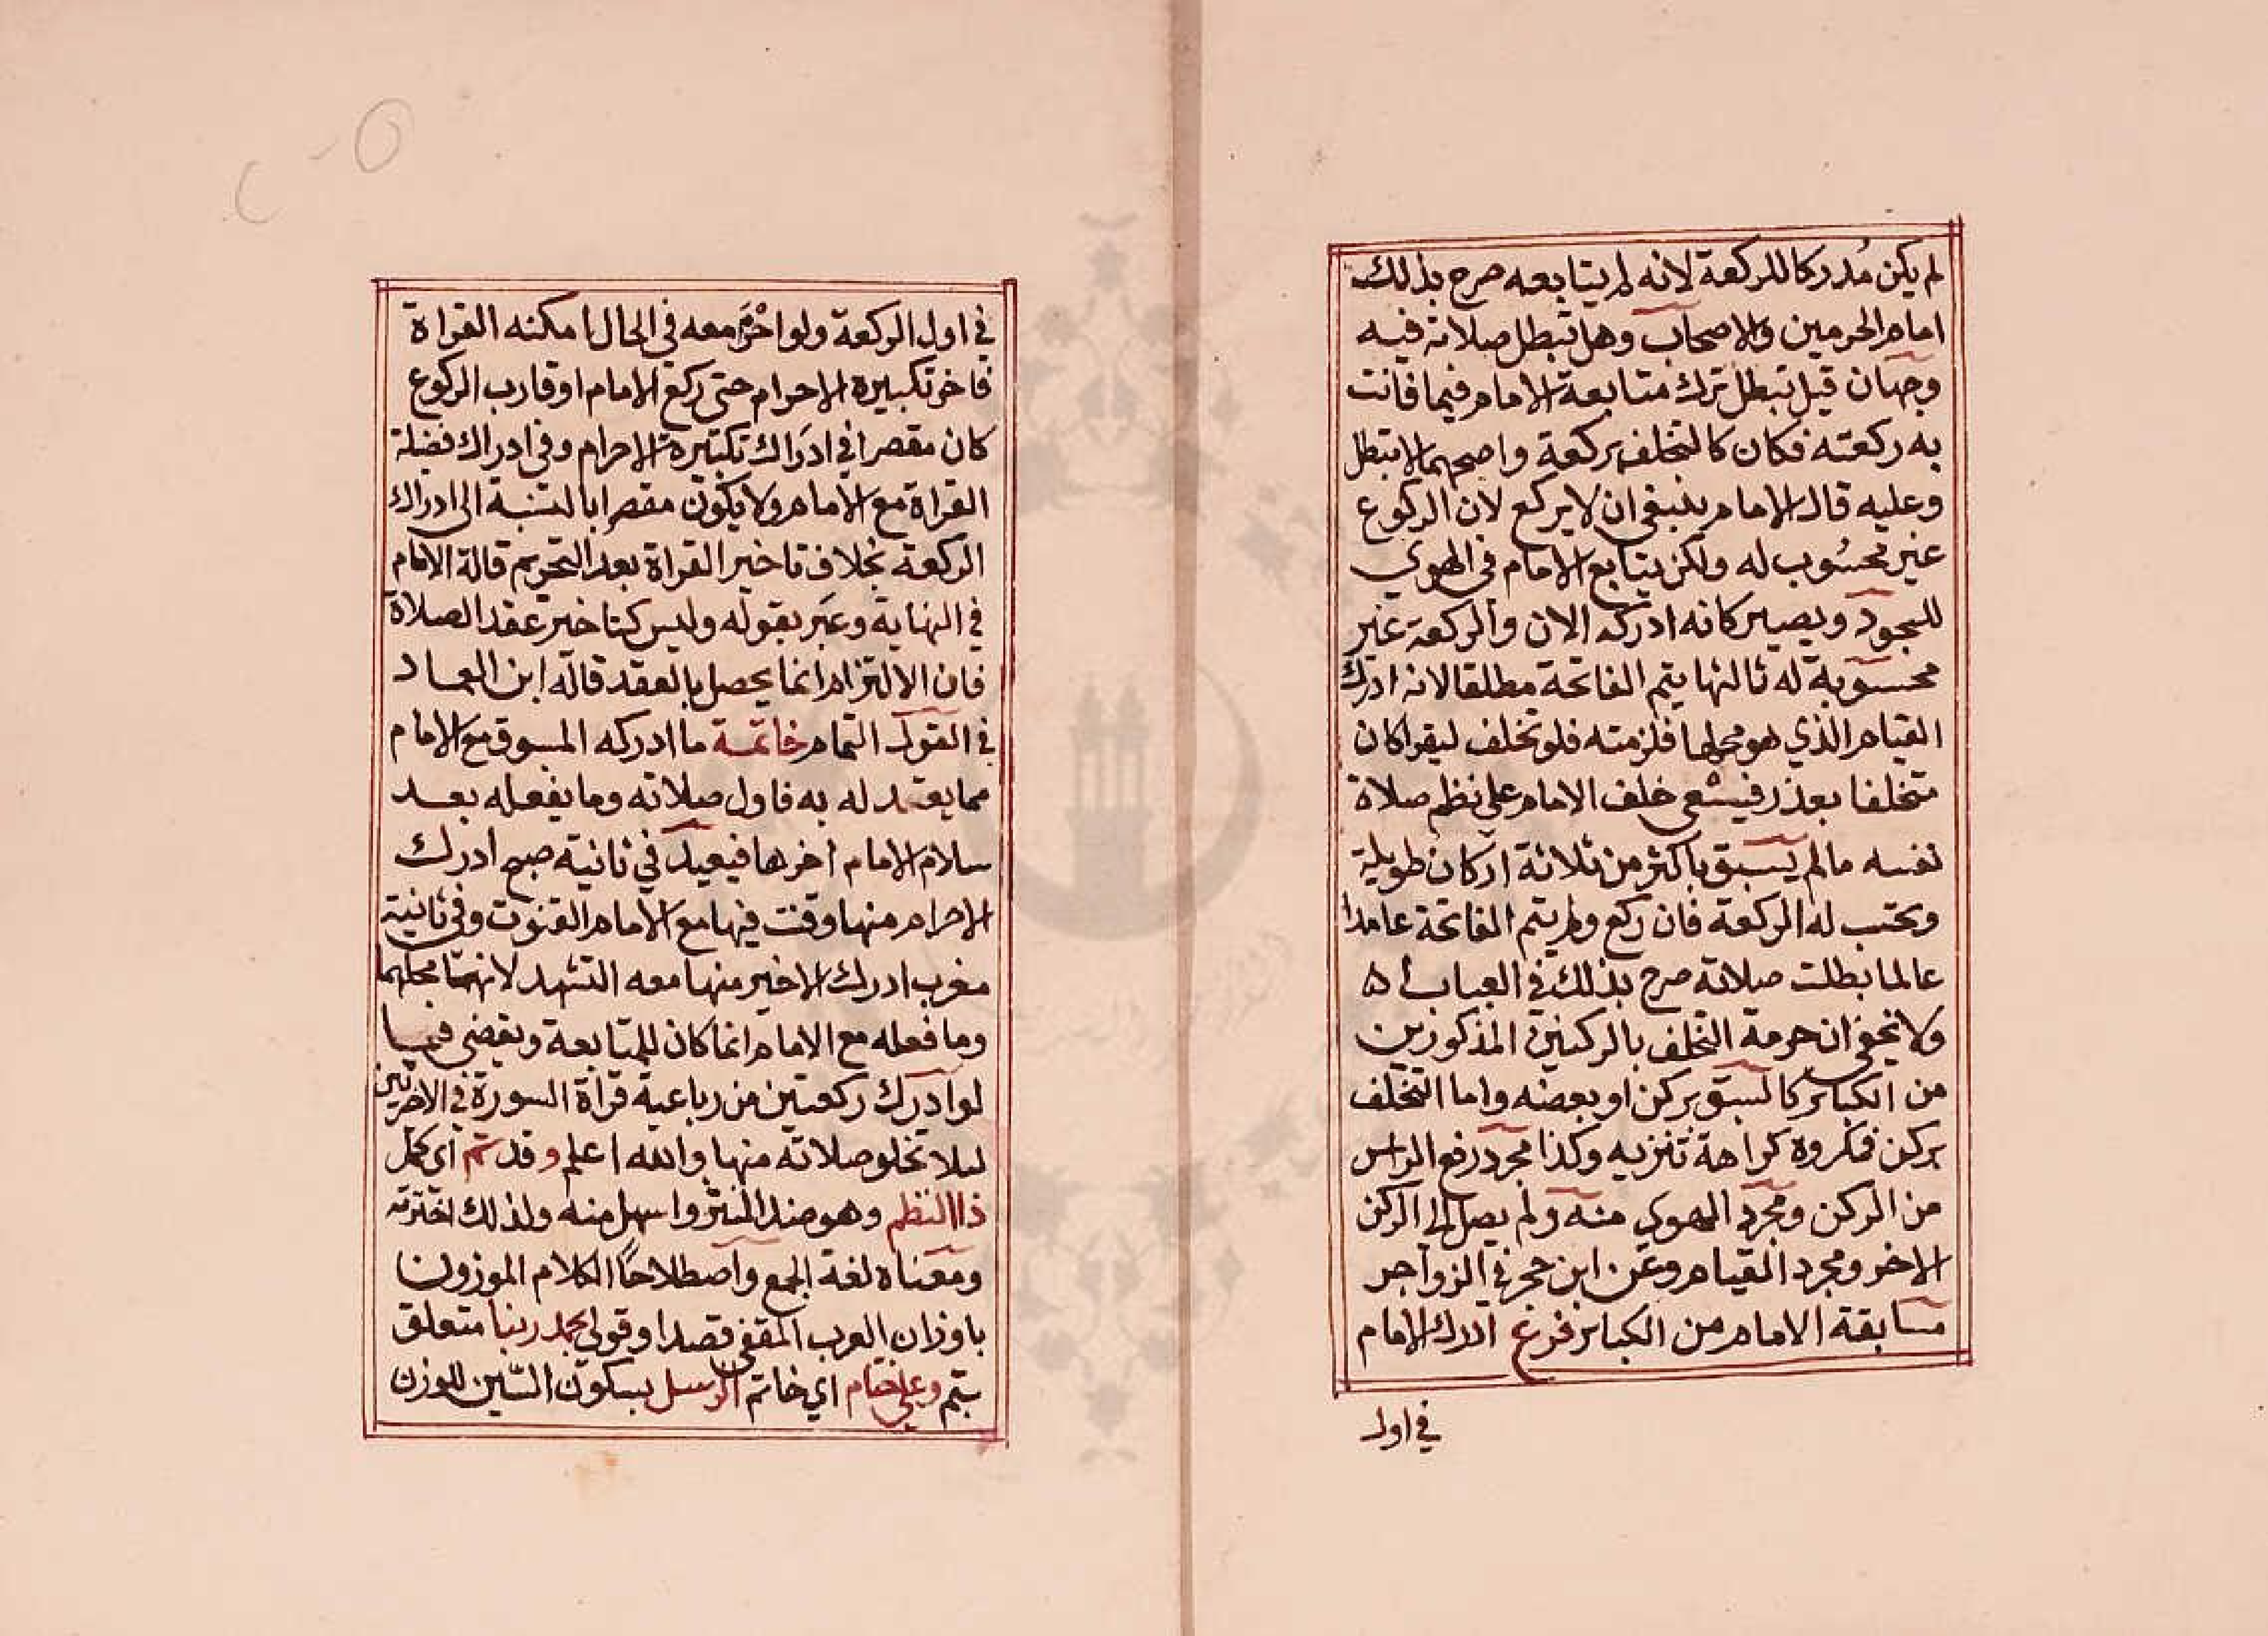 لم يكن مُدركا للركعة لانه لم يتابعه صرح بذلك
امام الحرمين والاصحاب وهل تبطل صلاته فيه
وجهان قيل تبطل ترك متابعة الامام فيما فاتت
به ركعته فكان كالتخلف بركعة واصحهما لا تبطل
وعليه قال الامام ينبغي ان لا يركع لان الركوع
غير محسُوب له ولكن يتابع الامام في الهوي
للسجود ويصير كانه ادركه الان والركعة غير
محسوبة له ثالثها يتم الفاتحة مطلقا لانه ادرك
القيام الذي هو محلها فلزمته فلو تخلف ليقرا كان
متخلفا بعذر فيسعى خلف الامام على نظم صلاة
نفسه مالم يسبق باكثر من ثلاثة اركان طويلة
وتحتسب له الركعة فان ركع ولم يتم الفاتحة عامدا
عالما بطلت صلاته صرح بذلك في العباب اه
ولا يخفى ان حرمة التخلف بالركنين المذكورين
من الكبائر كالسبق بركن او بعضه واما التخلف
بركن فمكروه كراهة تنزيه وكذا مجرد رفع الراس
من الركن ومجرد الهوي منه ولم يصل الى الركن
الاخر ومجرد القيام وعن ابن حجر في الزواجر
مسابقة الامام من الكبائر فرع ادرك الامام
في اول
في اول الركعة ولو احْرَمَ معه في الحال امكنه القراة
فاخر تكبيرة الاحرام حتى ركع الامام او قارب الركوع
كان مقصرا في ادراك تكبيرة الاحرام وفي ادراك فضيلة
القراة مع الامام ولا يكون مقصرا بالنسبة الى ادراك
الركعة بخلاف تاخير القراة بعد التحريم قاله الامام
في النهاية وعبر بقوله وليس كتاخير عقد الصلاة
فان الالتزام انما يحصل بالعقد قاله ابن العماد
في القول التمام خاتمة ما ادركه المسبوق مع الامام
مما يعتد له به فاول صلاته وما يفعله بعد
سلام الامام اخرها فيعيد في ثانية صبح ادرك
الاحرام منها وقنت فيها مع الامام القنوت وفي ثانية
مغرب ادرك الاخير منها معه التشهد لانهما محلهما
وما فعله مع الامام انما كان للمتابعة ويقضي فيما
لو ادرك ركعتين من رباعية قراة السورة في الاخرتين
ليلا تخلو صلاته منها والله اعلم وقد تم اي كمل
ذا النظم وهو ضد النثر واسهل منه ولذلك اخترته
ومعناه لغة الجمع واصطلاحًا الكلام الموزون
باوزان العرب المقفى قصدا وقولي بحمد ربنا متعلق
بتم وعلى ختام اي خاتم الرسل بسكون السّين للوزن